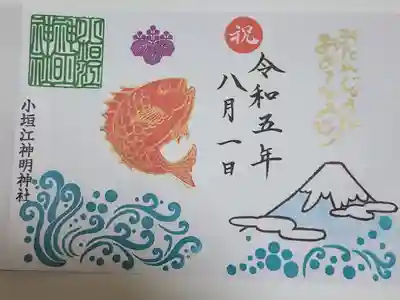 祝
令和五年
八月一日
小垣江
神明
神社
小垣江神明神社